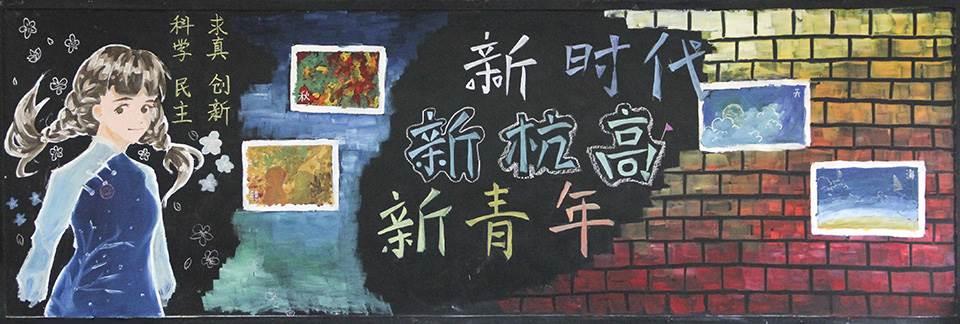 科学 民主
求真 创新
秋
新时代
新杭高
新青年
天
海